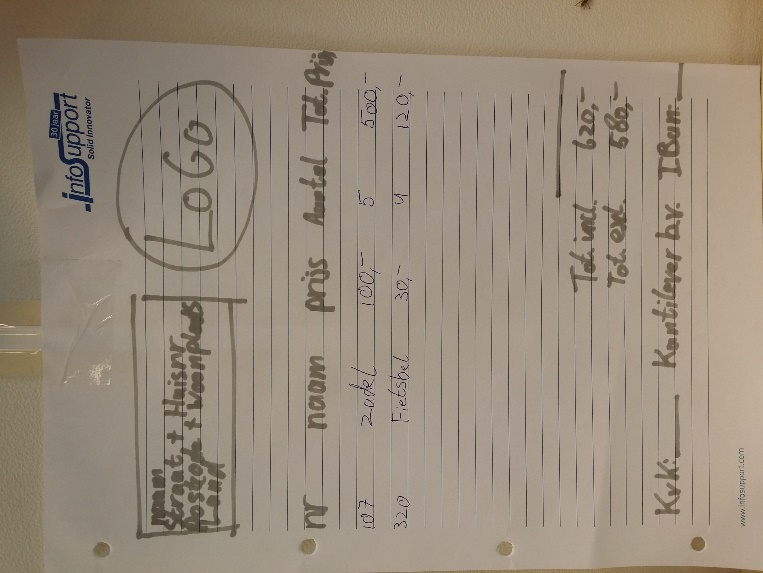 30 jaar
infoSupport
Solid Innovator
naam
Straat + Huisnr
Postcode + woonplaats
Land
LOGO
nr naam prijs Aantal Tot. Prijs
107 Zadel 100,- 5 500,-
320 Fietsbel 30,- 4 120,-
Tot. incl. 620,-
Tot. exl. 580,-
KvK: Kantilever b.v. IBan:
www.infosupport.com